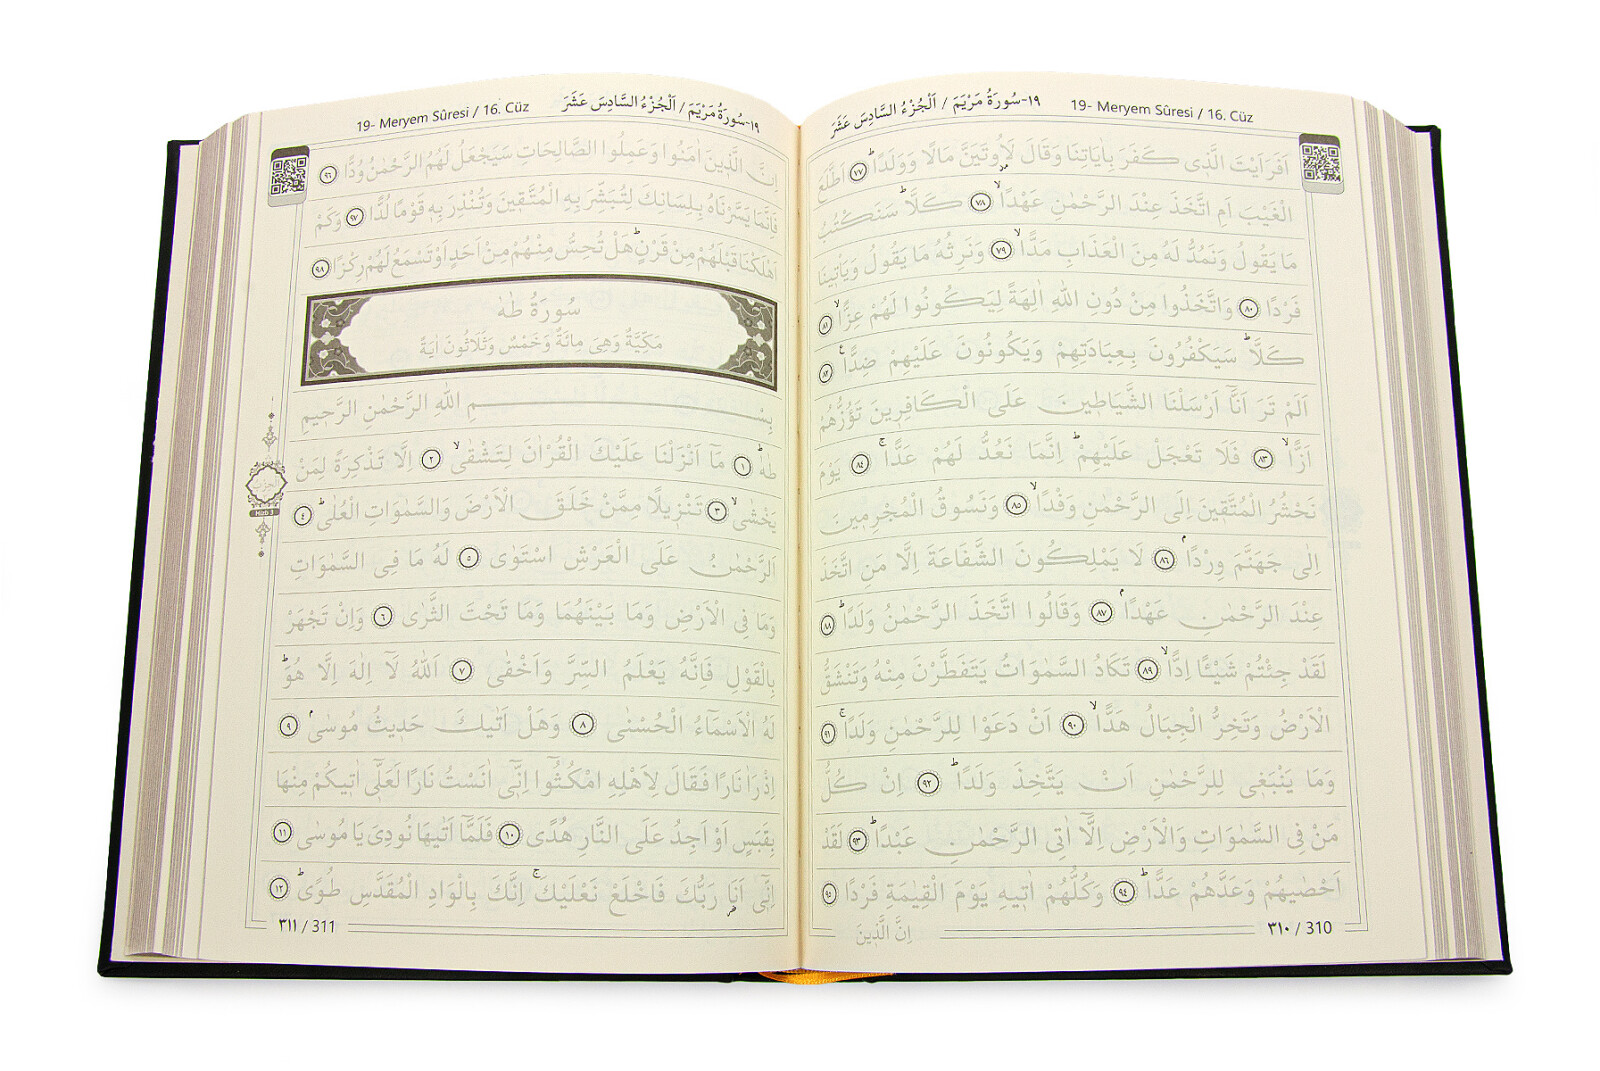 19- Meryem Sûresi / 16. Cüz
١٩-سُورَةُ مَرْيَمَ / اَلْجُزْءُ السَّادِسَ عَشَرَ
اَفَرَاَيْتَ الَّذٖى كَفَرَ بِاٰيَاتِنَا وَقَالَ لَاُوتَيَنَّ مَالًا وَوَلَدًاؕ ٧٧ اَطَّلَعَ
الْغَيْبَ اَمِ اتَّخَذَ عِنْدَ الرَّحْمٰنِ عَهْدًاۙ ٧٨ كَلَّاؕ سَنَكْتُبُ
مَا يَقُولُ وَنَمُدُّ لَهُ مِنَ الْعَذَابِ مَدًّاۙ ٧٩ وَنَرِثُهُ مَا يَقُولُ وَيَأْتٖينَا
فَرْدًا ٨٠ وَاتَّخَذُوا مِنْ دُونِ اللّٰهِ اٰلِهَةً لِيَكُونُوا لَهُمْ عِزًّاۙ ٨١
كَلَّاؕ سَيَكْفُرُونَ بِعِبَادَتِهِمْ وَيَكُونُونَ عَلَيْهِمْ ضِدًّا ٨٢
اَلَمْ تَرَ اَنَّٓا اَرْسَلْنَا الشَّيَاطٖينَ عَلَى الْكَافِرٖينَ تَؤُزُّهُمْ
اَزًّاۙ ٨٣ فَلَا تَعْجَلْ عَلَيْهِمْؕ اِنَّمَا نَعُدُّ لَهُمْ عَدًّاۚ ٨٤ يَوْمَ
نَحْشُرُ الْمُتَّقٖينَ اِلَى الرَّحْمٰنِ وَفْدًاۙ ٨٥ وَنَسُوقُ الْمُجْرِمٖينَ
اِلٰى جَهَنَّمَ وِرْدًاۘ ٨٦ لَا يَمْلِكُونَ الشَّفَاعَةَ اِلَّا مَنِ اتَّخَذَ
عِنْدَ الرَّحْمٰنِ عَهْدًاۘ ٨٧ وَقَالُوا اتَّخَذَ الرَّحْمٰنُ وَلَدًاؕ ٨٨
لَقَدْ جِئْتُمْ شَيْـًٔا اِدًّاۙ ٨٩ تَكَادُ السَّمٰوَاتُ يَتَفَطَّرْنَ مِنْهُ وَتَنْشَقُّ
الْاَرْضُ وَتَخِرُّ الْجِبَالُ هَدًّاۙ ٩٠ اَنْ دَعَوْا لِلرَّحْمٰنِ وَلَدًاۚ ٩١
وَمَا يَنْبَغٖى لِلرَّحْمٰنِ اَنْ يَتَّخِذَ وَلَدًاؕ ٩٢ اِنْ كُلُّ
مَنْ فِى السَّمٰوَاتِ وَالْاَرْضِ اِلَّٓا اٰتِى الرَّحْمٰنِ عَبْدًاؕ ٩٣ لَقَدْ
اَحْصٰيهُمْ وَعَدَّهُمْ عَدًّاؕ ٩٤ وَكُلُّهُمْ اٰتٖيهِ يَوْمَ الْقِيٰمَةِ فَرْدًا ٩٥
٣١٠ / 310
اِنَّ الَّذٖينَ
١٩-سُورَةُ مَرْيَمَ / اَلْجُزْءُ السَّادِسَ عَشَرَ
19- Meryem Sûresi / 16. Cüz
اِنَّ الَّذٖينَ اٰمَنُوا وَعَمِلُوا الصَّالِحَاتِ سَيَجْعَلُ لَهُمُ الرَّحْمٰنُ وُدًّا ٩٦
فَاِنَّمَا يَسَّرْنَاهُ بِلِسَانِكَ لِتُبَشِّرَ بِهِ الْمُتَّقٖينَ وَتُنْذِرَ بِهٖ قَوْمًا لُدًّا ٩٧ وَكَمْ
اَهْلَكْنَا قَبْلَهُمْ مِنْ قَرْنٍؕ هَلْ تُحِسُّ مِنْهُمْ مِنْ اَحَدٍ اَوْ تَسْمَعُ لَهُمْ رِكْزًا ٩٨
سُورَةُ طٰهٰ
مَكِّيَّةٌ وَهِىَ مِائَةٌ وَخَمْسٌ وَثَلَاثُونَ اٰيَةً
بِسْمِ اللّٰهِ الرَّحْمٰنِ الرَّحٖيمِ
طٰهٰؕ ١ مَٓا اَنْزَلْنَا عَلَيْكَ الْقُرْاٰنَ لِتَشْقٰىۙ ٢ اِلَّا تَذْكِرَةً لِمَنْ
يَخْشٰىۙ ٣ تَنْزٖيلًا مِمَّنْ خَلَقَ الْاَرْضَ وَالسَّمٰوَاتِ الْعُلٰىؕ ٤
اَلرَّحْمٰنُ عَلَى الْعَرْشِ اسْتَوٰى ٥ لَهُ مَا فِى السَّمٰوَاتِ
وَمَا فِى الْاَرْضِ وَمَا بَيْنَهُمَا وَمَا تَحْتَ الثَّرٰى ٦ وَاِنْ تَجْهَرْ
بِالْقَوْلِ فَاِنَّهُ يَعْلَمُ السِّرَّ وَاَخْفٰى ٧ اَللّٰهُ لَٓا اِلٰهَ اِلَّا هُوَؕ
لَهُ الْاَسْمَٓاءُ الْحُسْنٰى ٨ وَهَلْ اَتٰيكَ حَدٖيثُ مُوسٰىۘ ٩
اِذْ رَاٰ نَارًا فَقَالَ لِاَهْلِهِ امْكُثُٓوا اِنّٖٓى اٰنَسْتُ نَارًا لَعَلّٖٓى اٰتٖيكُمْ مِنْهَا
بِقَبَسٍ اَوْ اَجِدُ عَلَى النَّارِ هُدًى ١٠ فَلَمَّٓا اَتٰيهَا نُودِىَ يَا مُوسٰى ١١
اِنّٖٓى اَنَا رَبُّكَ فَاخْلَعْ نَعْلَيْكَۚ اِنَّكَ بِالْوَادِ الْمُقَدَّسِ طُوًىؕ ١٢
الحزب
Hizb 3
٣١١ / 311